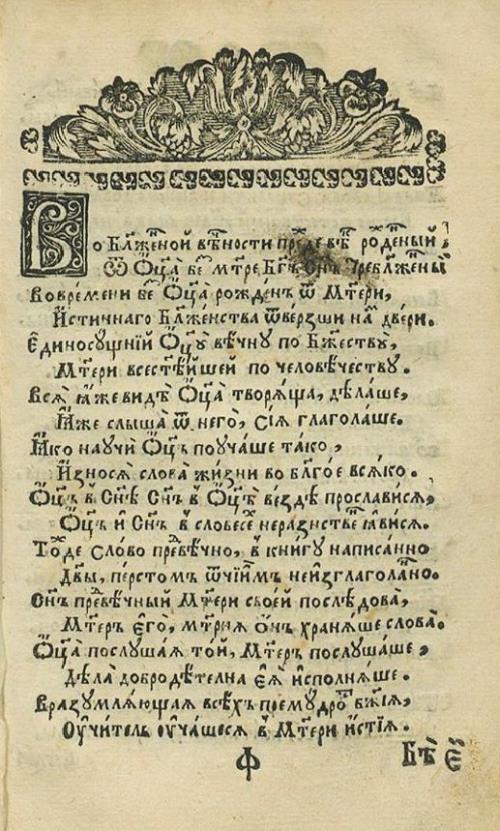 Во Бл҃же́нной вѣ́чности пре́жде вѣ̑къ рожде́нный
Ѿ Ѻ҃ца̀ бе́з̾ мт҃ре, Бг҃ъ Сн҃ъ Пребл҃же́нный
Во вре́мени без̾ Ѻ҃ца̀ рожде́нъ ѿ Мт҃ери,
И҆́стиннаго Бл҃же́нства ѿве́рзши на́мъ две́ри.
Є҆диносꙋ́щнїй Ѻ҃цꙋ̀ вѣ́чнꙋ по Бж҃ествꙋ̀,
Мт҃ери всест҃ѣ́йшей по человѣ́честву.
Всѧ̀ ꙗ҆̀же ви́дѣ Ѻ҃ца̀ творѧ́ща, дѣ́лаше,
Ꙗ҆̀же слы́ша ѿ него̀, сїѧ̑ глаго́лаше.
Ꙗ҆́ко наꙋчѝ Ѻ҃цъ поꙋча́ше та́ко,
И҆знося̀ словеса̀ жи́зни во благо́е всѧ́ко.
Ѻ҃цъ в̾ Сн҃ѣ Сн҃ъ в̾ Ѻ҃цѣ̀ вездѣ̀ просла́висѧ,
Ѻ҃цъ и҆ Сн҃ъ в̾ словесѐ нера́знственнѣ ꙗ҆ви́сѧ.
То́жде сло́во предвѣ́чно, в̾ кни́гꙋ напи́санно
Дв҃ы, пе́рстомъ ѻ҆́ч҃їимъ неи҆зглаго́ланно.
Сн҃ъ предвѣ́чный Мт҃ери свое́й послѣ́дова,
Мт҃еръ є҆гѡ̀, мт҃рнѧ ѻ҆́нъ хранѧ́ше слова̀.
Ѻ҃ца̀ послꙋ́шаѧ то́й, Мт҃еръ послꙋ́шаше,
Дѣла̀ добродѣ́телна є҆ѧ̀ и҆сполнѧ́ше.
Вразꙋмлѧ́ющаѧ всѣ́хъ премꙋ́дрость бж҃їѧ,
Оу҆чи́тель ᲂу҆ча́шесѧ в̾ Мт҃ери и҆́стїѧ.
Ф Бѣ̀ є҆